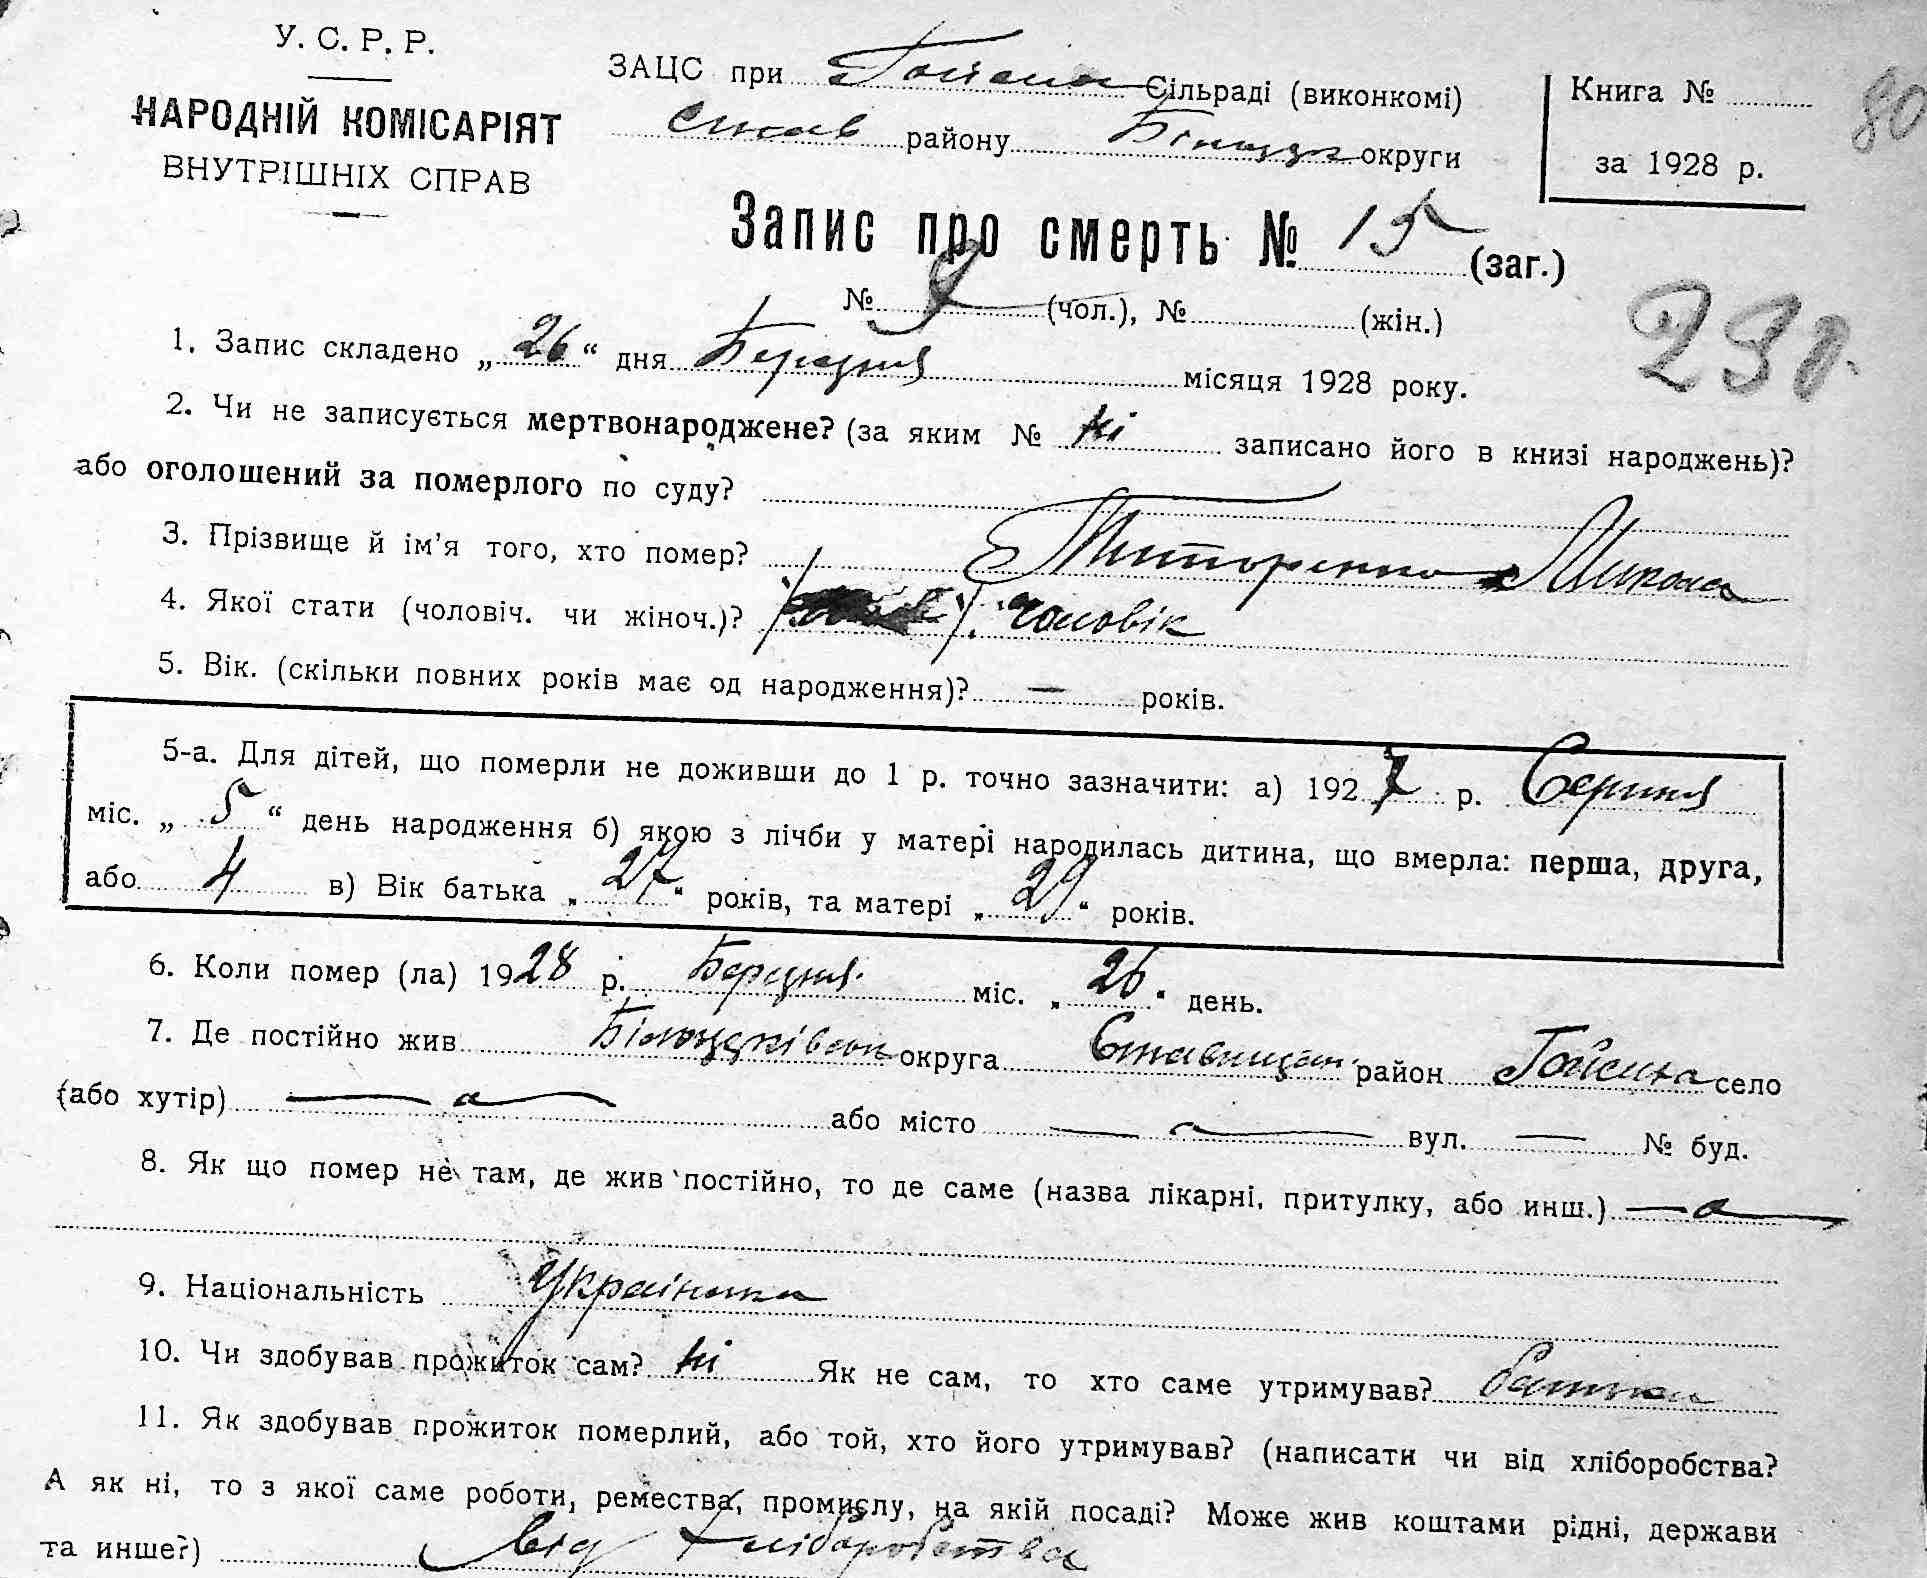 У. С. Р. Р.
НАРОДНІЙ КОМІСАРІЯТ
ВНУТРІШНІХ СПРАВ
ЗАЦС при Гайсин Сільраді (виконкомі)
Став району Білоцерк округи
Книга №
за 1928 р.
80
Запис про смерть № 15 (заг.)
№ 9 (чол.), № (жін.)
230
1. Запис складено „ 26 “ дня Березня місяця 1928 року.
2. Чи не записується мертвонароджене? (за яким № ні записано його в книзі народжень)?
або оголошений за померлого по суду?
3. Прізвище й ім’я того, хто помер? Титоренко Микола
4. Якої стати (чоловіч. чи жіноч.)? Чоловік
5. Вік. (скільки повних років має од народження)? — років.
5-а. Для дітей, що померли не доживши до 1 р. точно зазначити: а) 1927 р. Серпня
міс. „ 5 “ день народження б) якою з лічби у матері народилась дитина, що вмерла: перша, друга,
або 4 в) Вік батька „ 27 “ років, та матері „ 29 “ років.
6. Коли помер (ла) 1928 р. Березня міс. „ 26 “ день.
7. Де постійно жив Білоцерківськ округа Ставищан район Гайсин село
(або хутір) — або місто — вул. — № буд.
8. Як що помер не там, де жив постійно, то де саме (назва лікарні, притулку, або инш.) —
9. Національність Українка
10. Чи здобував прожиток сам? ні Як не сам, то хто саме утримував? батьки
11. Як здобував прожиток померлий, або той, хто його утримував? (написати чи від хліборобства?
А як ні, то з якої саме роботи, ремества, промислу, на якій посаді? Може жив коштами рідні, держави
та инше?) від хліборобства